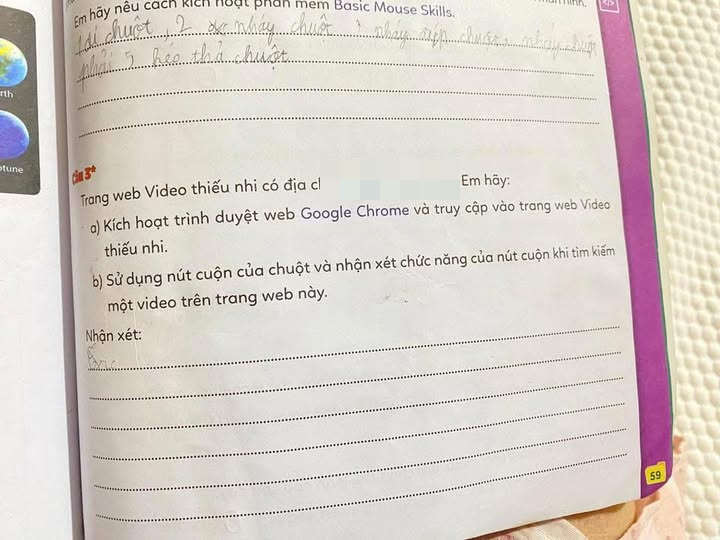 Em hãy nêu cách kích hoạt phần mềm Basic Mouse Skills.
chuột, 2 nháy chuột 3 nháy chuột
phải 5 kéo thả chuột
rth
ptune
Câu 3*
Trang web Video thiếu nhi có địa c Em hãy:
a) Kích hoạt trình duyệt web Google Chrome và truy cập vào trang web Video
thiếu nhi.
b) Sử dụng nút cuộn của chuột và nhận xét chức năng của nút cuộn khi tìm kiếm
một video trên trang web này.
Nhận xét:
59